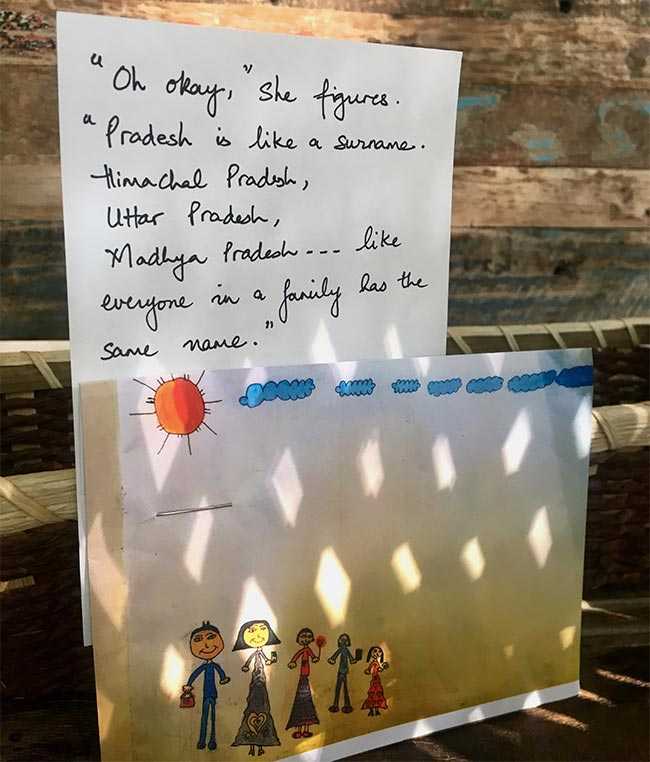 "Oh okay," She figures.
"Pradesh is like a surname.
Himachal Pradesh,
Uttar Pradesh,
Madhya Pradesh --- like
everyone in a family has the
same name."